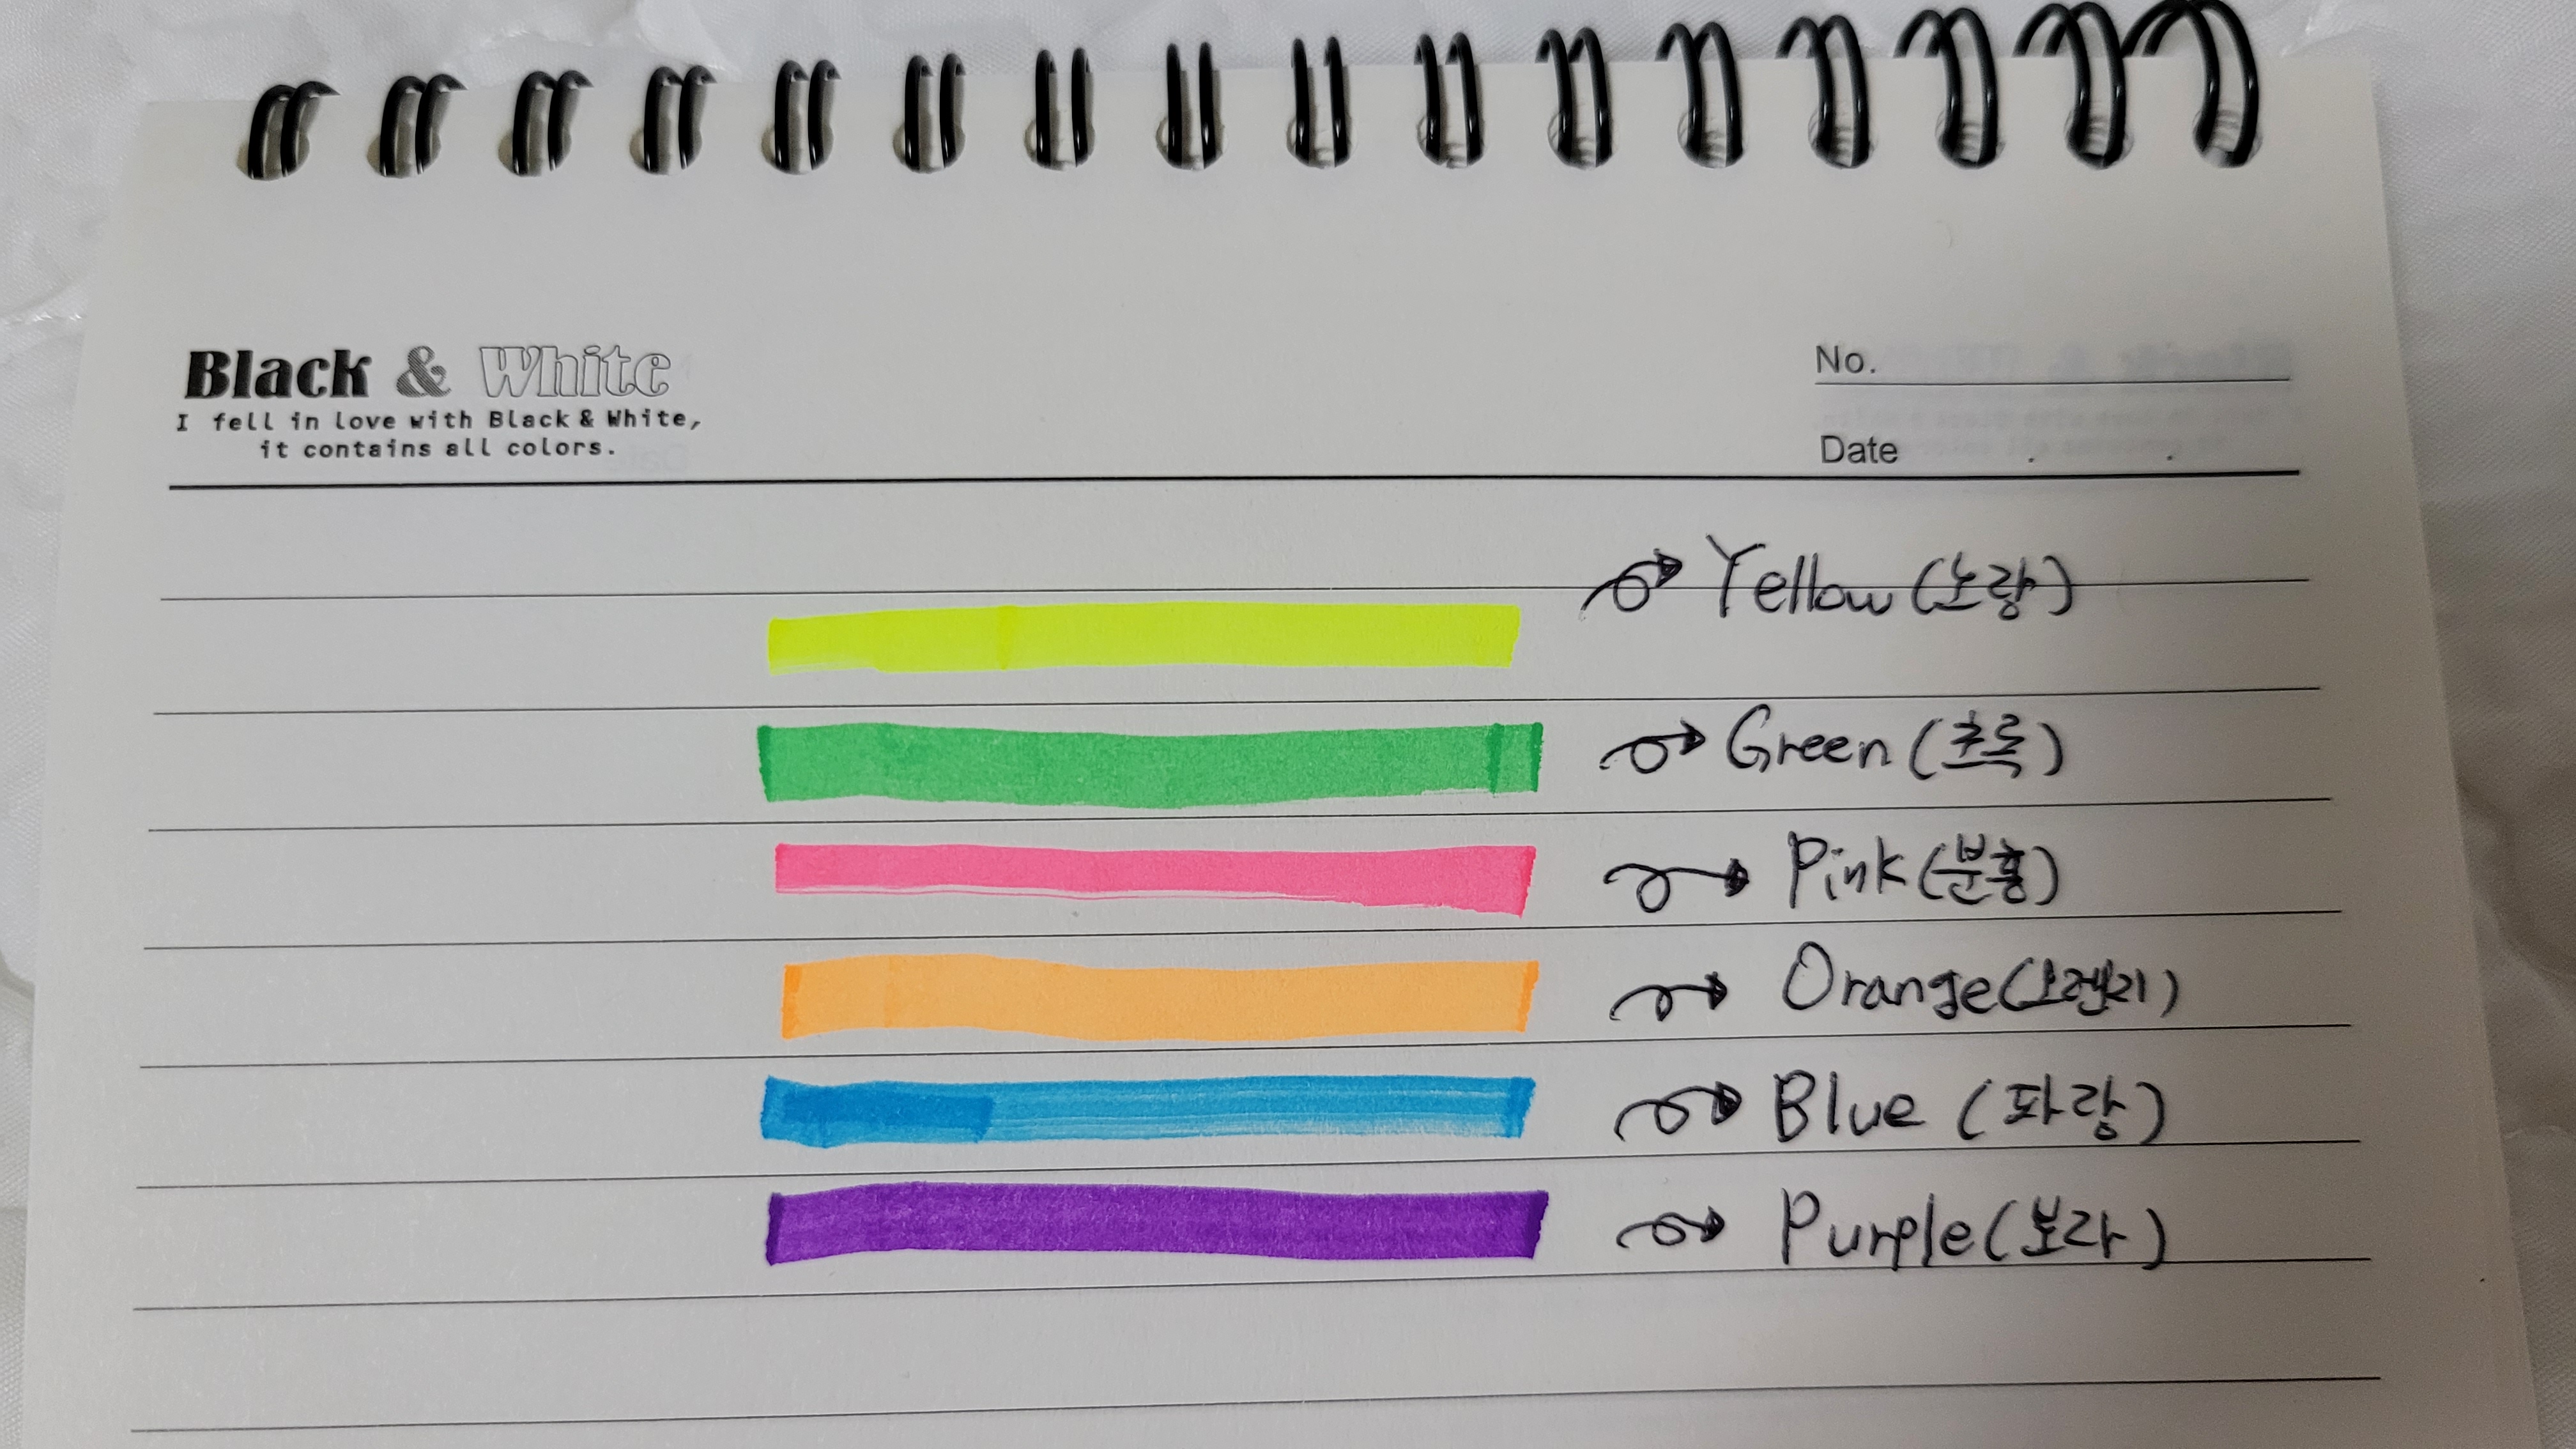 Black & White
I fell in love with Black & White,
it contains all colors.
No.
Date . .
Yellow (노랑)
Green (초록)
Pink (분홍)
Orange (오렌지)
Blue (파랑)
Purple (보라)